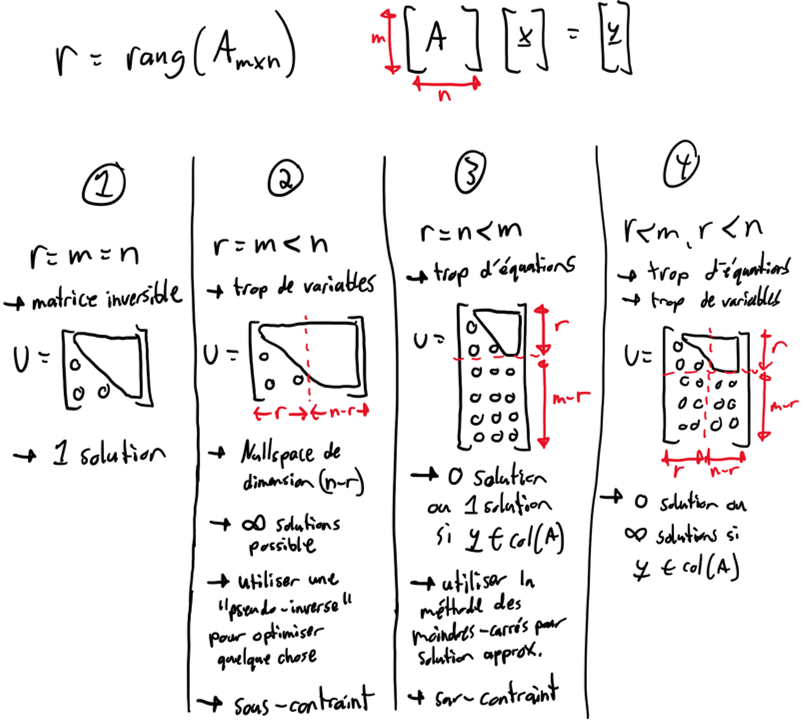 r = rang(A_{m×n})
m [A] [x] = [y]
n
1
r = m = n
→ matrice inversible
U =
0
0 0
→ 1 solution
2
r = m < n
→ trop de variables
U =
0
0 0
r n-r
→ Nullspace de
dimension (n-r)
→ ∞ solutions
possible
→ utiliser une
"pseudo-inverse"
pour optimiser
quelque chose
→ sous-contraint
3
r = n < m
→ trop d'équations
U =
0
0 0
0 0 0
0 0 0
0 0 0
0 0 0
r
m-r
→ 0 solution
ou 1 solution
si y ∈ col(A)
→ utiliser la
méthode des
moindres-carrés pour
solution approx.
→ sur-contraint
4
r < m, r < n
→ trop d'équations
→ trop de variables
U =
0
0 0
0 0 0 0
0 0 0 0
0 0 0 0
r
m-r
r n-r
→ 0 solution ou
∞ solutions si
y ∈ col(A)